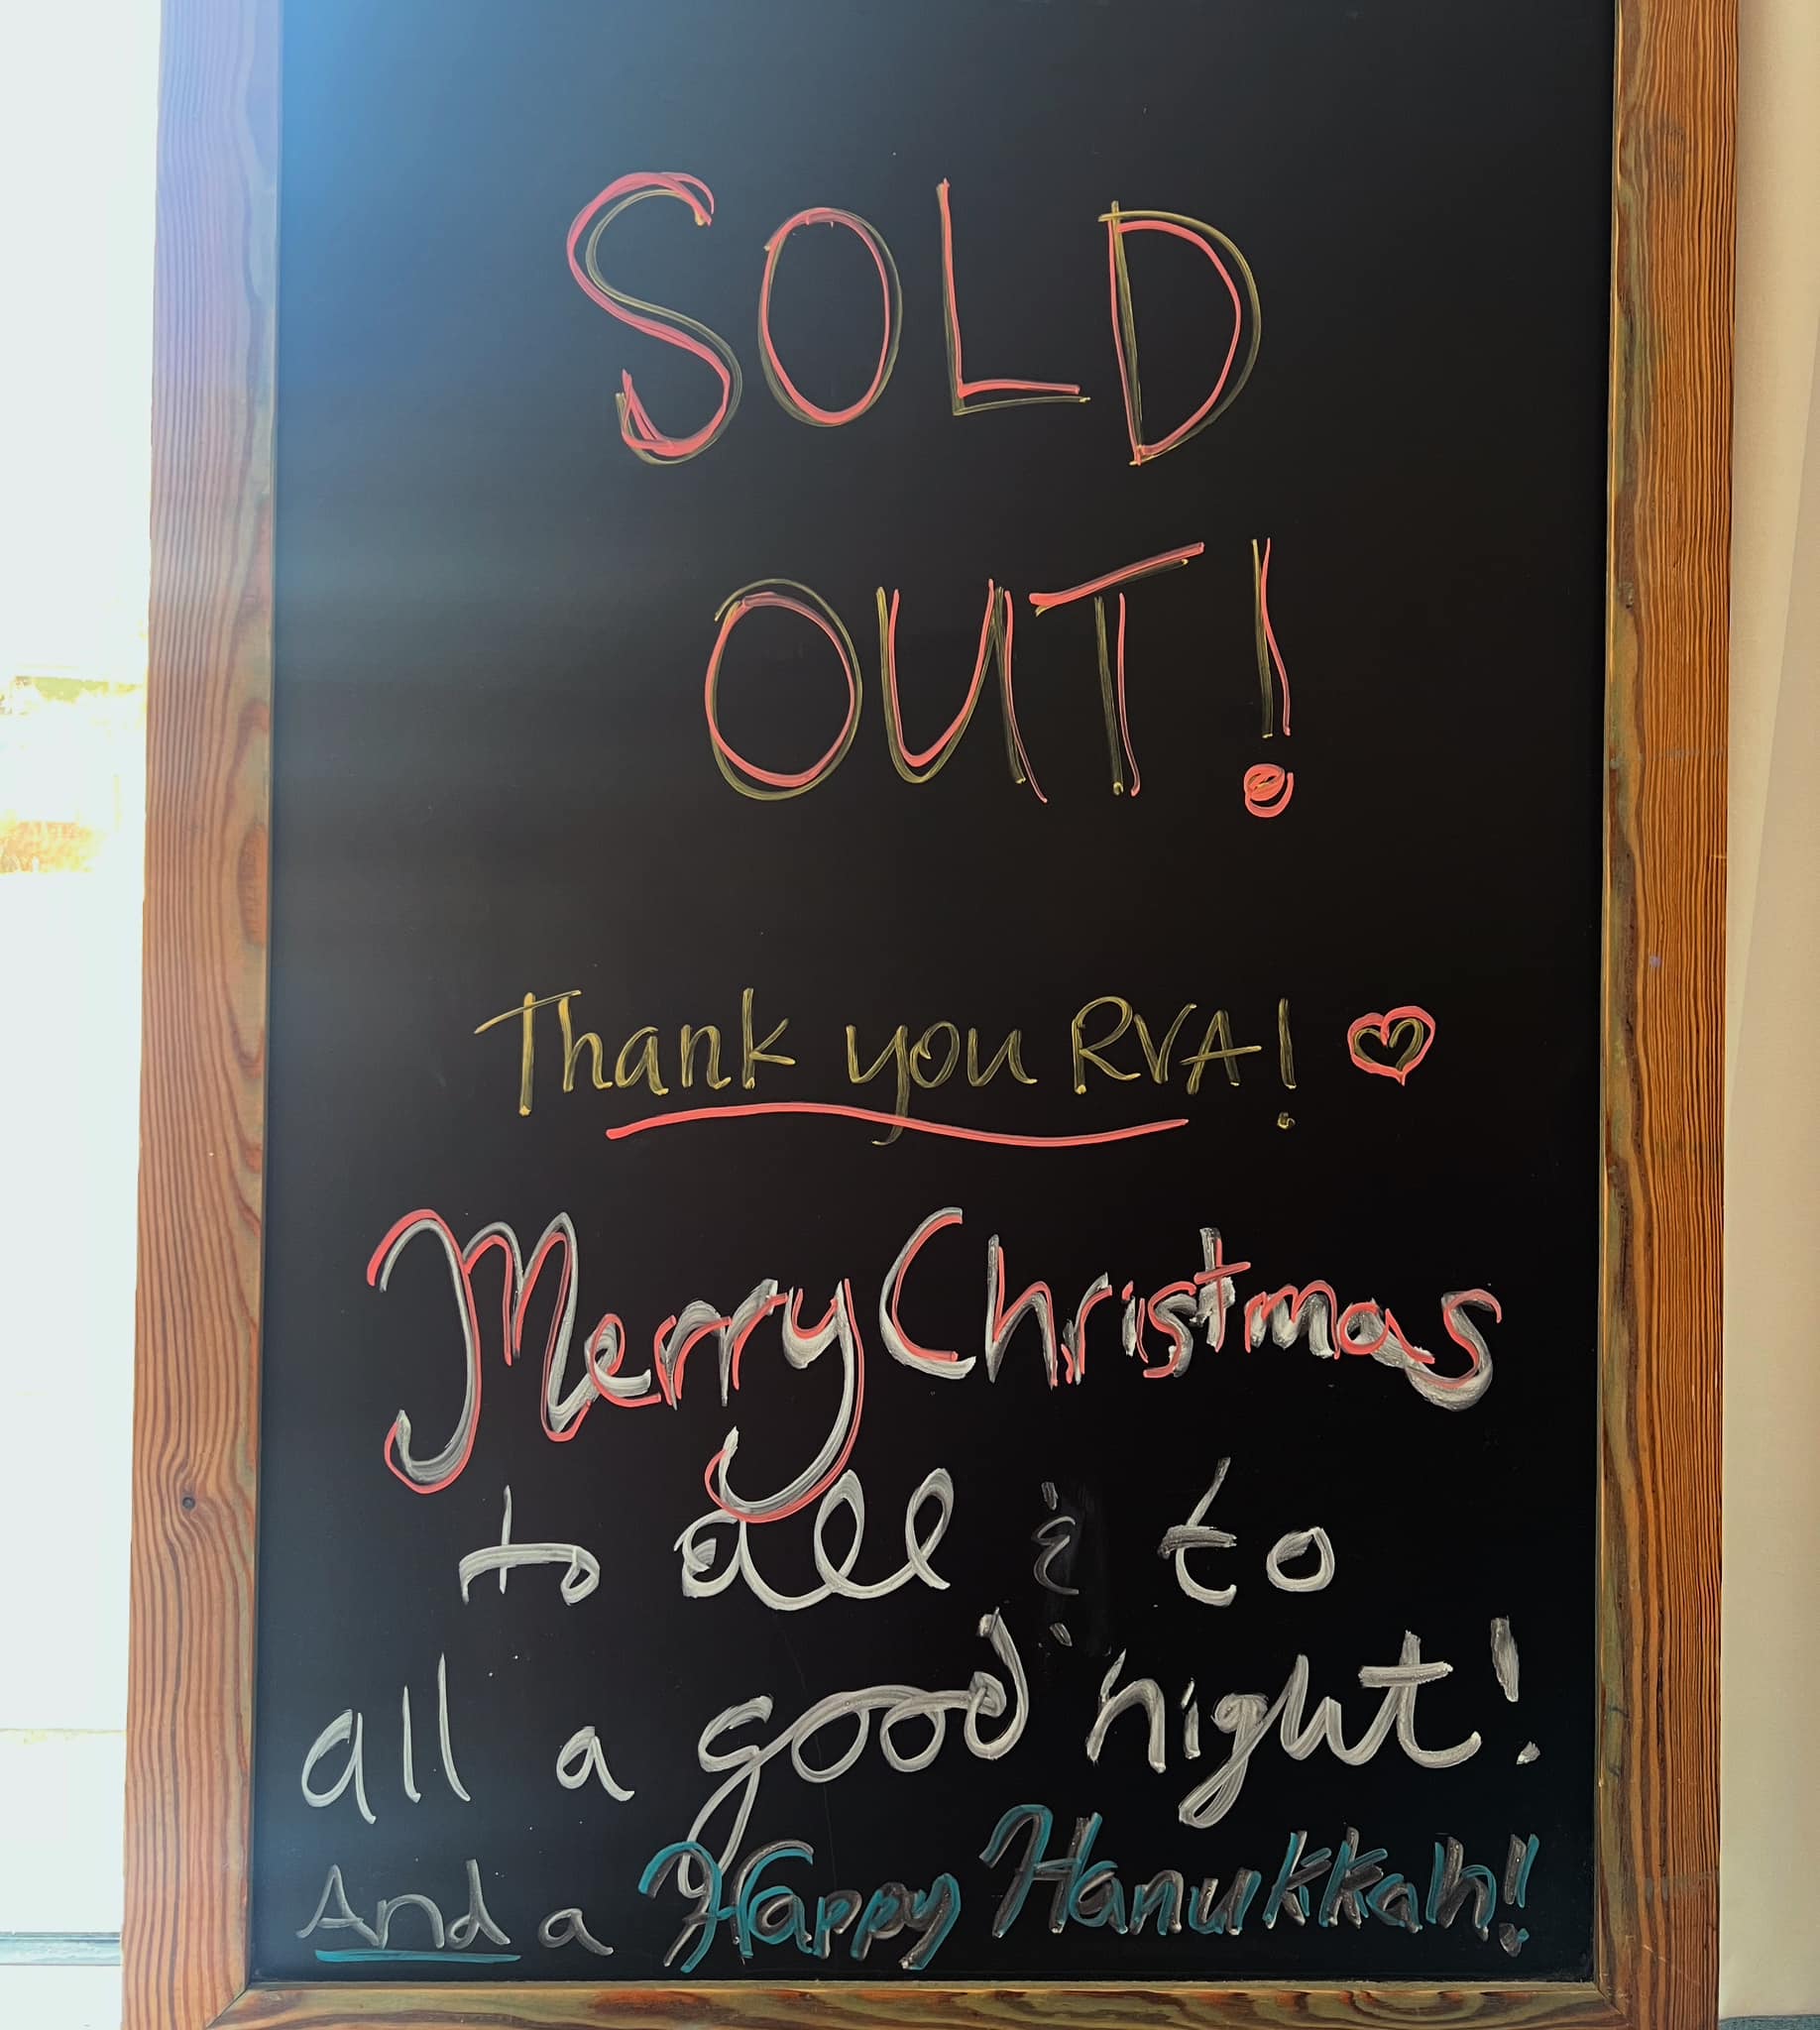 SOLD
OUT!
Thank you RVA!
Merry Christmas
to all & to
all a good night!
And a Happy Hanukkah!!